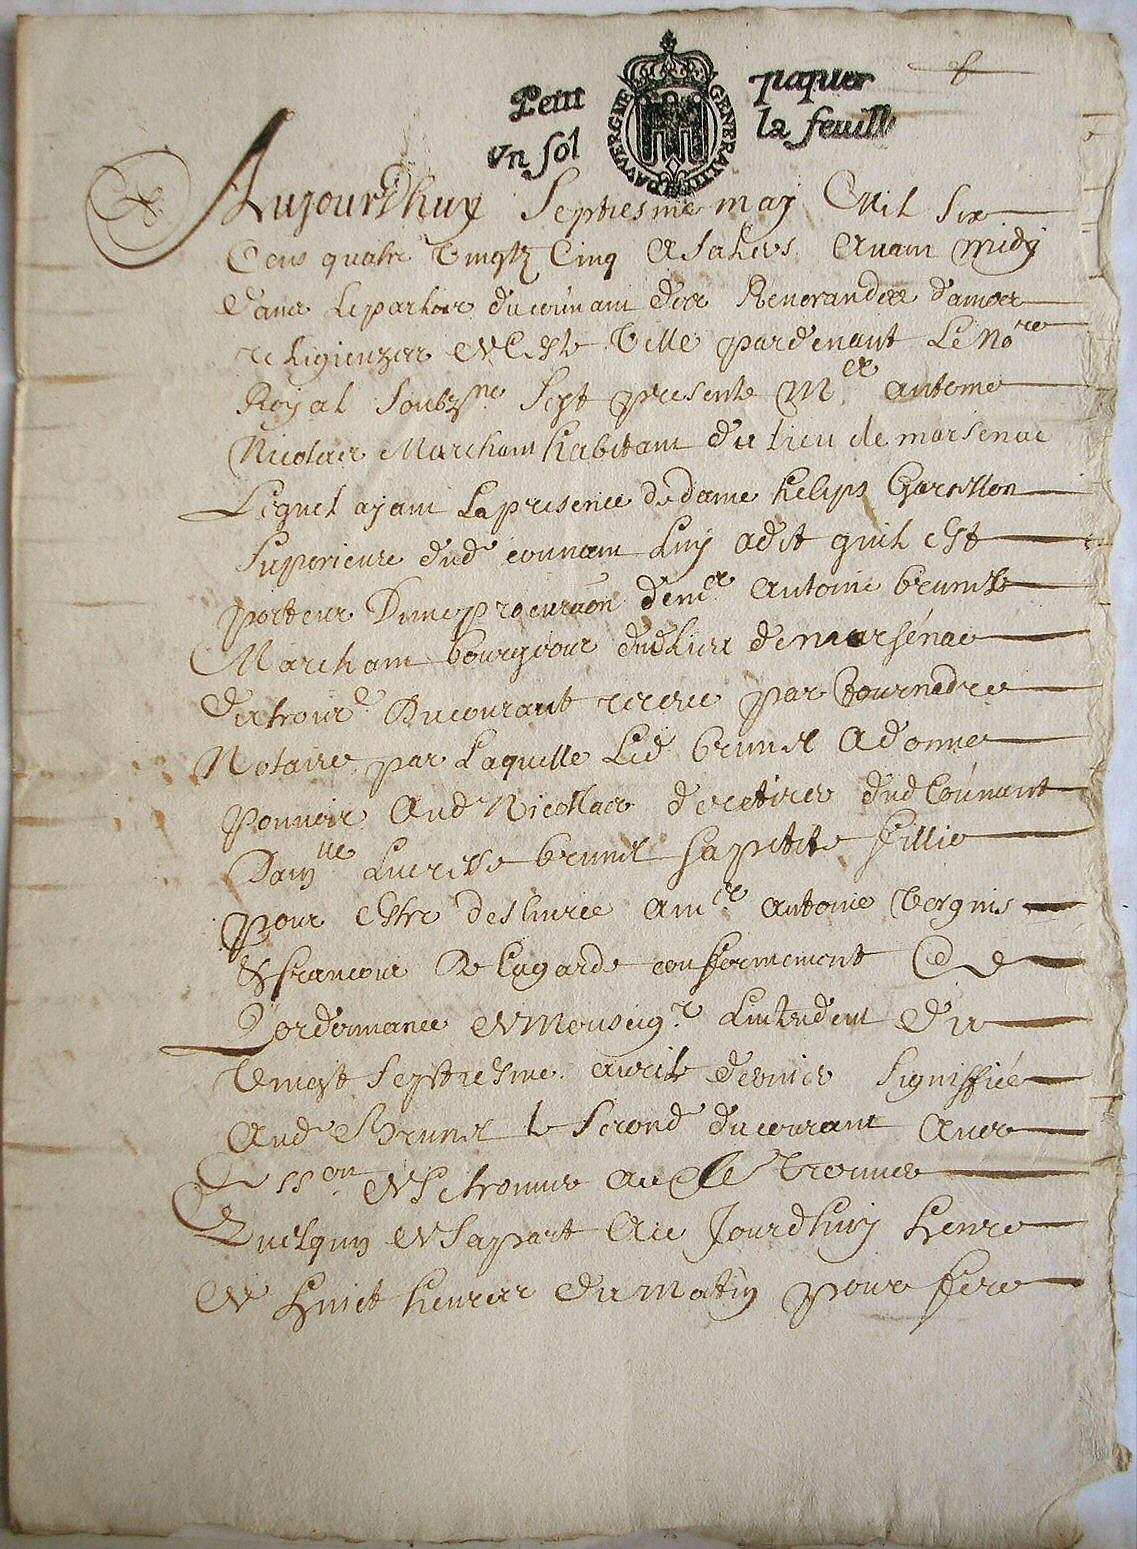 Petit papier
un sol la feuille
GENERALITE D'AUVERGNE
Aujourdhuy Septiesme may Mil Six
Cens quatre Vingtz Cinq A Salers Avant midy
dans le parloir du couvant des
religieuzes Ville pardevant Le No.re
Royal Soubz.ne Sest presente M.er antoine
Nicolas Marchant habitant du lieu de marsenac
Lequel ajant La presence de dame helips
Superieure dud couvant Luy a dit quil est
porteur Dune procuraōn de m.er Antoine brunel
Marchant bourgeois dud lieu de marsénac
du courant receue par
Notaire par Laquelle Led brunel A donne
pouvoir Aud Nicollas de retirer dud Couvant
Dam.lle Lucresse brunel sa petite fillie
pour Estre deslivrée a m.er antoine Vergnis
& francois De Lagarde conformement
Lordonnance de Monseig.r Lintendent du
Vingt septiesme avril dernier signiffiée
Aud Brunel le second du courant Avec
trouver
Quelquy de sa part A ce Jourdhuy heure
de huict heures du matin pour fere